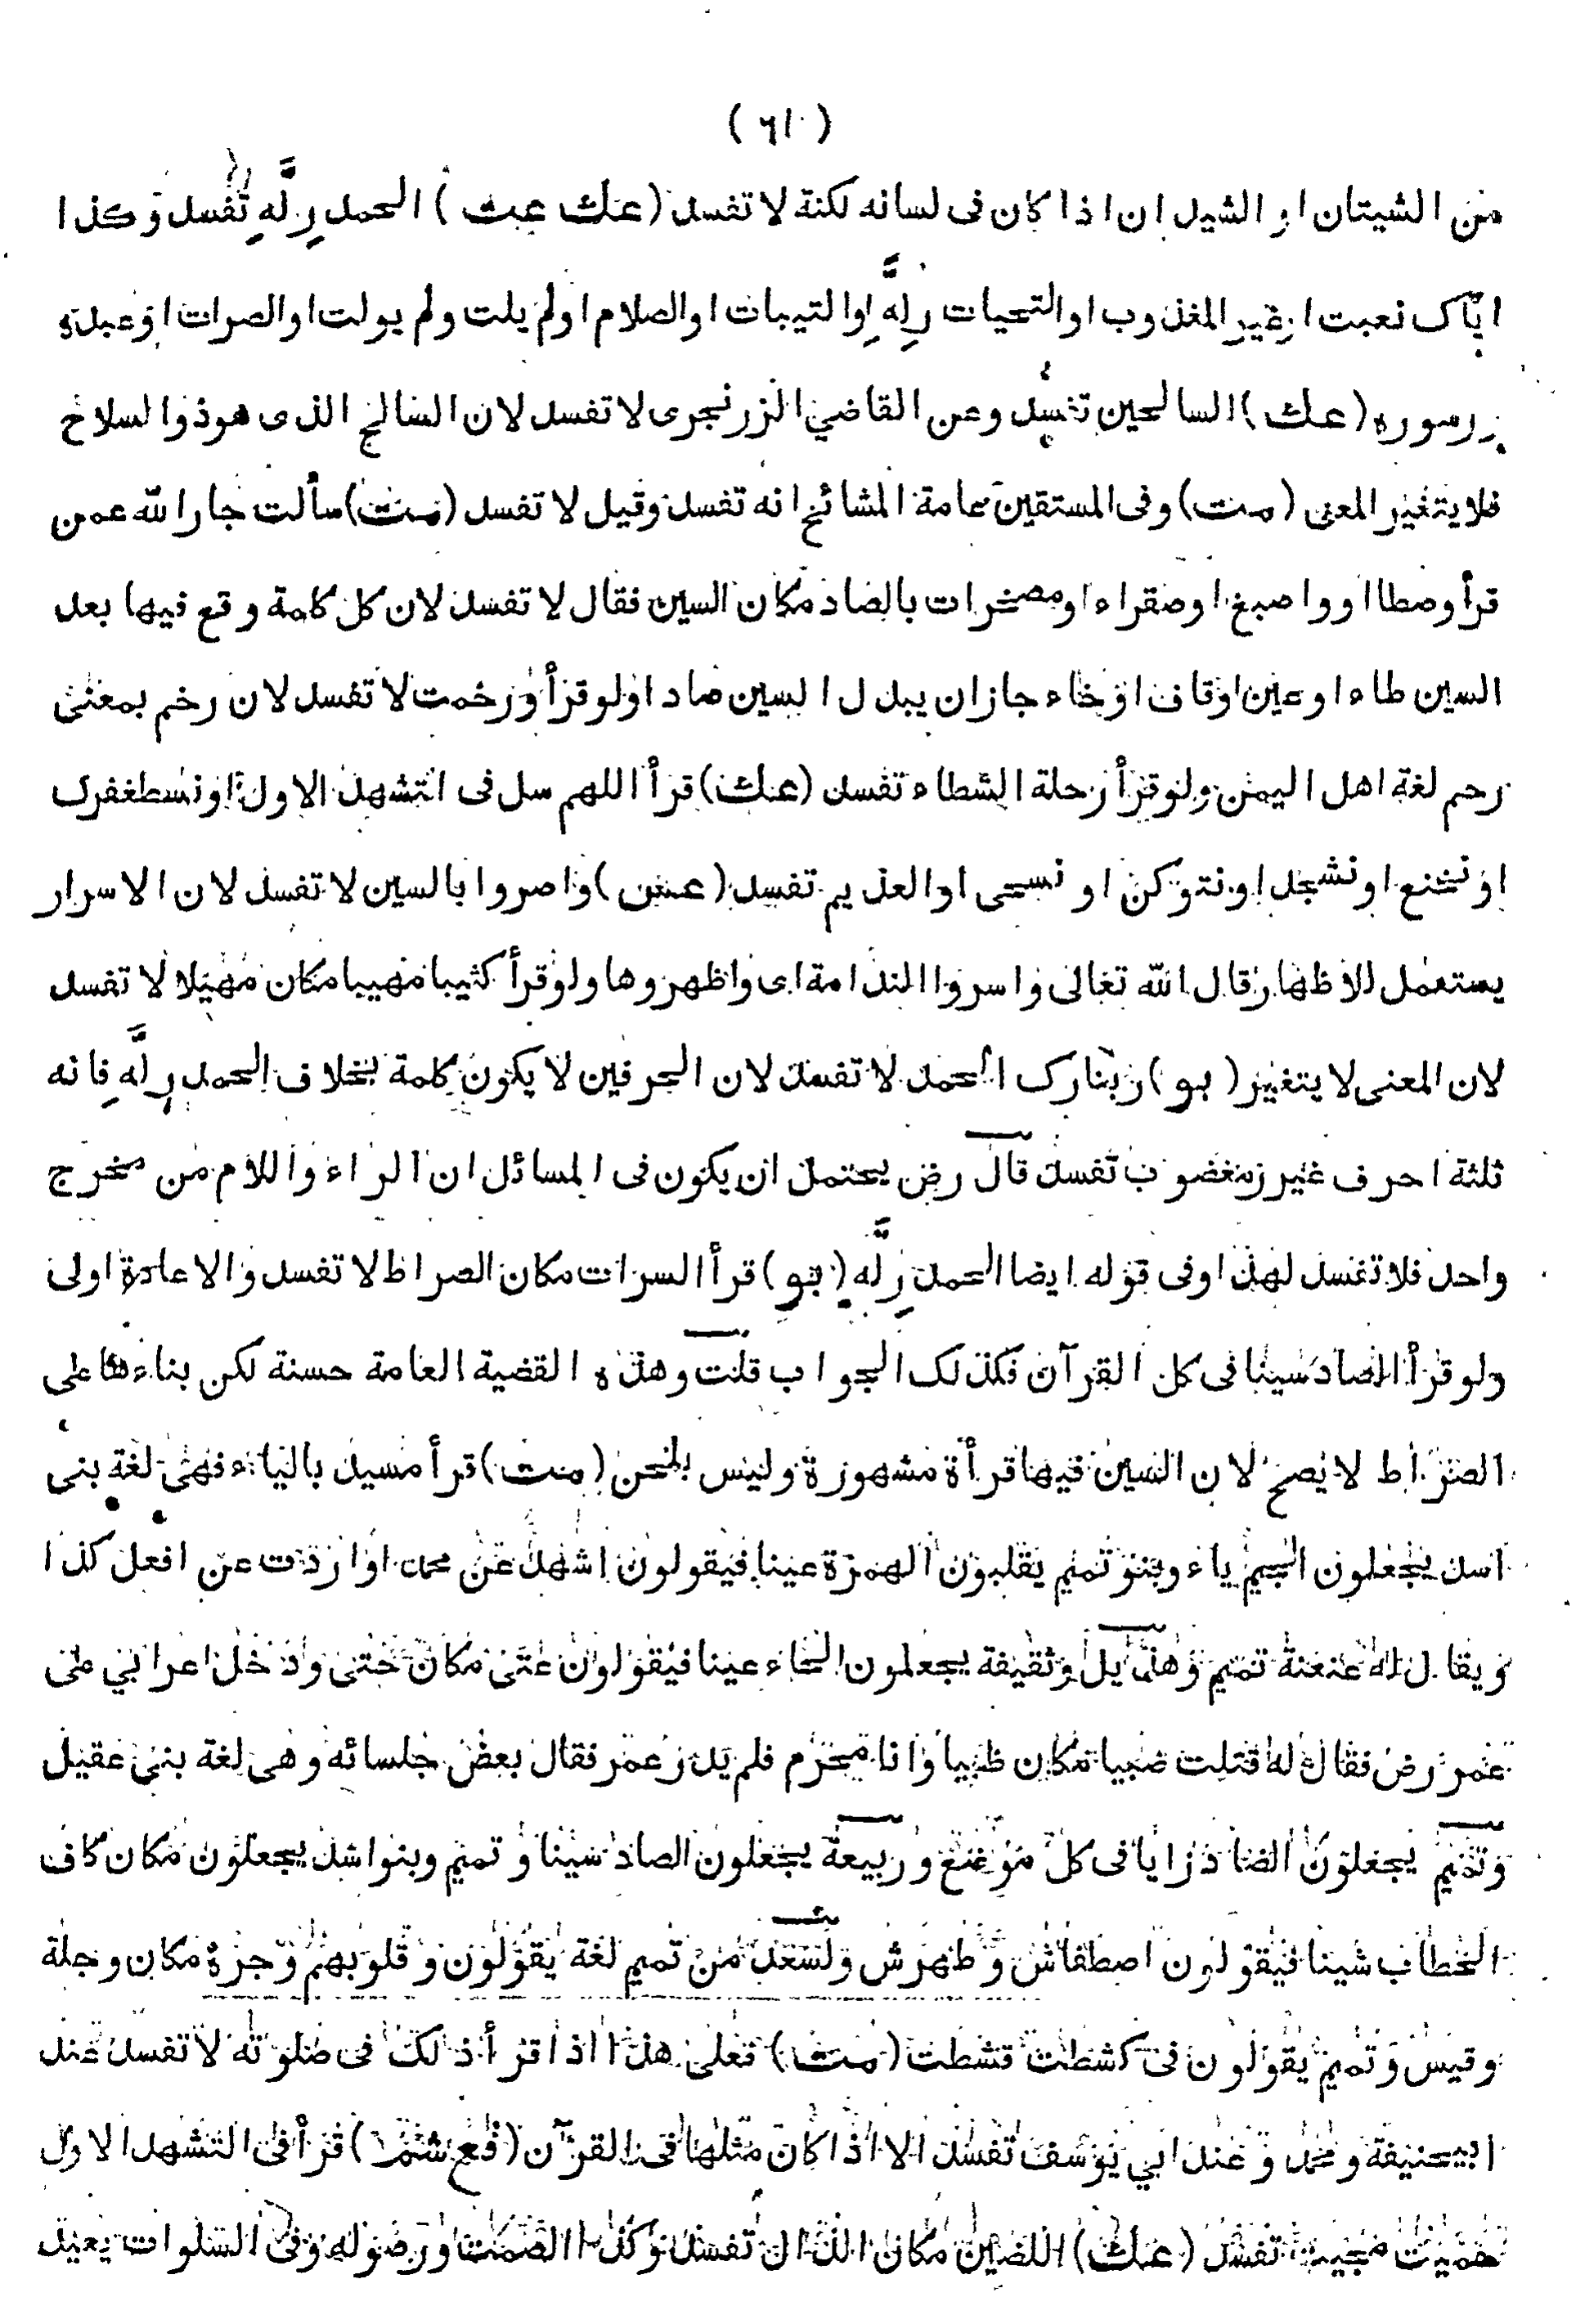 ( ٦١ )
من الشيتان او الشيدان اذا كان فى لسانه لكنة لا تفسد (عك عث) الحمد رلّه تفسد وكذا
ايّاک نعبت او غير المغذوب او التحيات رلّه او التيبات او الصلام او لم يلت ولم يولت او الصرات او عبده
ررسوره (عك) السالحين تفسد وعن القاضي الزرنجرى لا تفسد لان السالح الذى هو ذو السلاح
فلا يتغير المعنى (مت) وفى المستقين عامة المشائخ انه تفسد وقيل لا تفسد (مت) سألت جار الله عمن
قرأ وصطا او واصبغ او صقراء او مصخرات بالصاد مكان السين فقال لا تفسد لان كل كلمة وقع فيها بعد
السين طاء او عين او قاف او خاء جاز ان يبدل السين صادا ولو قرأ ورخمت لا تفسد لان رخم بمعنى
رحم لغة اهل اليمن ولو قرأ رحلة الشطاء تفسد (عك) قرأ اللهم سل فى التشهد الاول او نسطغفرک
او نخنع او نشجد او نتوكن او نسحى او العذيم تفسد (عس) واصروا بالسين لا تفسد لان الاسرار
يستعمل للاظهار قال الله تعالى واسروا الندامة اى واظهروها ولو قرأ كثيبا مهيبا مكان مهيلا لا تفسد
لان المعنى لا يتغير (بو) ربنارک الحمد لا تفسد لان الحرفين لا يكون كلمة بخلاف الحمد رلّه فانه
ثلثة احرف غير زمغضوب تفسد قال رض يحتمل ان يكون فى المسائل ان الراء واللام من مخرج
واحد فلا تفسد لهذا وفى قوله ايضا الحمد رلّه (بو) قرأ السرات مكان الصراط لا تفسد والاعادة اولى
ولو قرأ الصاد سينا فى كل القرآن فكذلک الجواب قلت وهذه القضية العامة حسنة لكن بناءها على
الصراط لا يصح لان السين فيها قرأة مشهورة وليس بلحن (مت) قرأ مسيد بالياء فهى لغة بنى
اسد يجعلون الجيم ياء وبنو تميم يقلبون الهمزة عينا فيقولون اشهد عن محمد او اردت عن افعل كذا
ويقال له عنعنة تميم وهذيل وثقيفة يجعلون الحاء عينا فيقولون عتى مكان حتى ودخل اعرابي على
عمر رض فقال له قتلت ضبيا مكان ظبيا وانا محرم فلم يدر عمر فقال بعض جلسائه وهى لغة بنى عقيل
وتميم يجعلون الصاد زايا فى كل موضع وربيعة يجعلون الصاد سينا وتميم وبنو اسد يجعلون مكان كاف
الخطاب شينا فيقولون اصطفاش وطهرش ولسعد من تميم لغة يقولون وقلوبهم وجزه مكان وجلة
وقيس وتميم يقولون فى كشطت قشطت (مت) فعلى هذا اذا قرأ ذلک فى صلوته لا تفسد عند
ابيحنيفة ومحمد وعند ابي يوسف تفسد الا اذا كان مثلها فى القرآن (فع شم) قرأ فى التشهد الاول
حميت مجيت تفسد (عك) اللضين مكان الذين تفسد وكذا الصمت ورضوله وفى السلوات يعيد